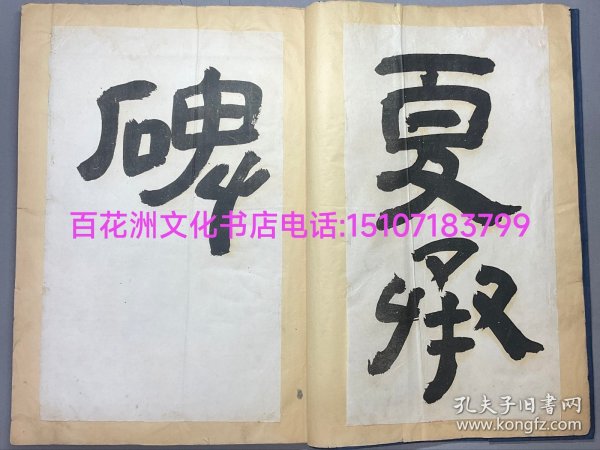 夏承
碑
百花洲文化书店电话:15107183799
孔夫子旧书网
www.kongfz.com